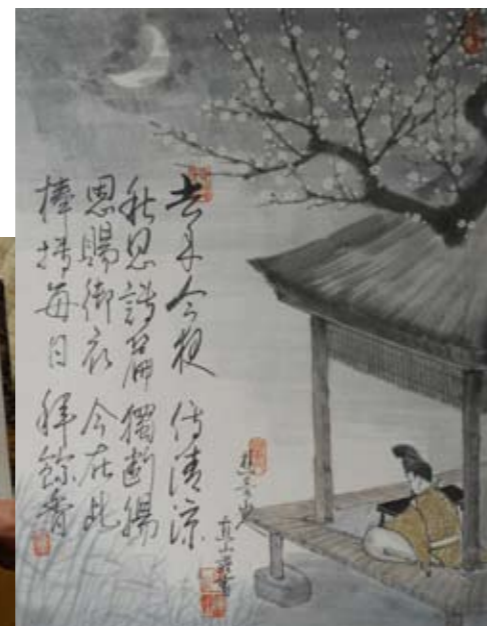 去年今夜 侍清涼
秋思詩篇 獨断腸
恩賜御衣 今在此
捧持毎日 拝餘香